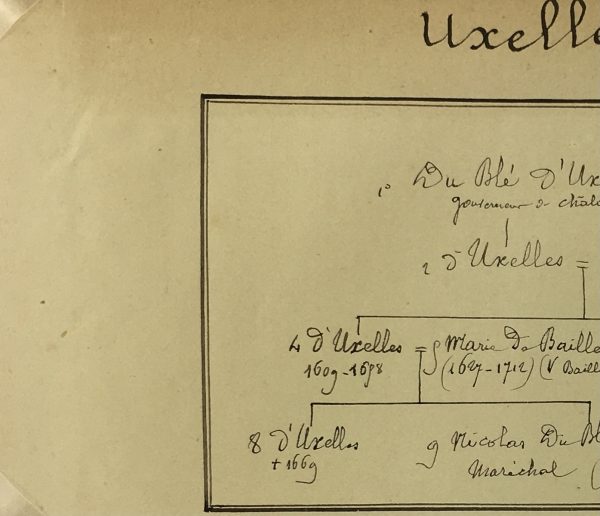 Uxelle
1° Du Blé d'Ux
gouverneur de châl
2 d'Uxelles =
4 d'Uxelles = 5 Marie De Baille
1609-1658 (1627-1712) (V Baill
8 d'Uxelles 9 Nicolas Du Bl
+ 1669 Maréchal (